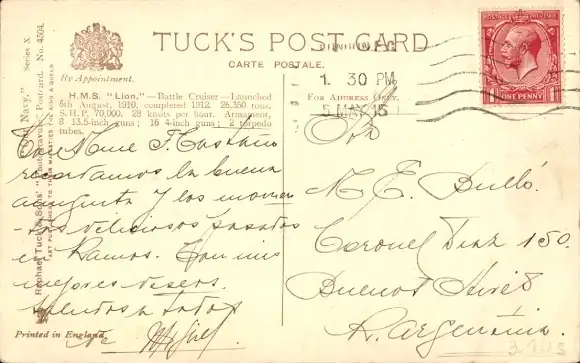 TUCK'S POST CARD
CARTE POSTALE.
By Appointment.
H.M.S. "Lion."—Battle Cruiser—Launched
6th August, 1910, completed 1912. 26,350 tons.
S.H.P. 70,000. 28 knots per hour. Armament,
8 13.5-inch guns; 16 4-inch guns; 2 torpedo
tubes.
Raphael Tuck & Sons' "Photogravure" Postcard. No. 4504.
"Our Navy." Series X.
ART PUBLISHERS TO THEIR MAJESTIES THE KING & QUEEN
recordamos la buena
y los
deliciosos pasados
en Ramos. Con mis
mejores deseos.
saludos a todos
Printed in England.
1. 30 PM
5 MAY 15
For Address Only.
POSTAGE REVENUE
ONE PENNY
M. E. Bulló.
Coronel Diaz 150.
Buenos Aires
R. Argentina.